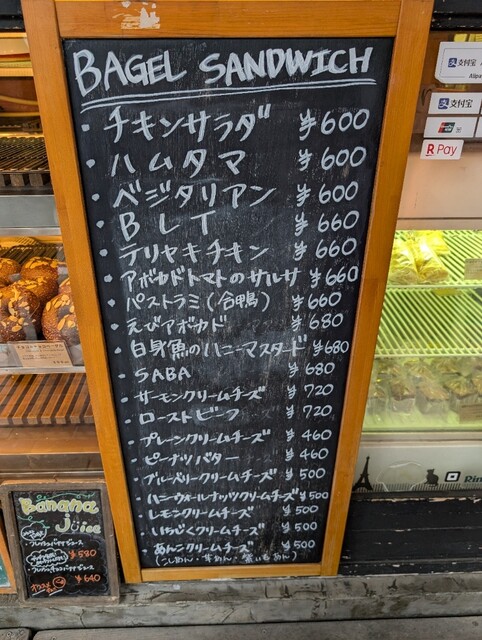 BAGEL SANDWICH
・チキンサラダ ¥600
・ハムタマ ¥600
・ベジタリアン ¥600
・BLT ¥660
・テリヤキチキン ¥660
・アボカドトマトのサルサ ¥660
・パストラミ(合鴨) ¥660
・えびアボカド ¥680
・白身魚のハニーマスタード ¥680
・SABA ¥680
・サーモンクリームチーズ ¥720
・ローストビーフ ¥720
・プレーンクリームチーズ ¥460
・ピーナツバター ¥460
・ブルーベリークリームチーズ ¥500
・ハニーウォールナッツクリームチーズ ¥500
・レモンクリームチーズ ¥500
・いちじくクリームチーズ ¥500
・あんこクリームチーズ ¥500
支付宝
支付宝
R Pay
Banana
Juice
¥580
¥640